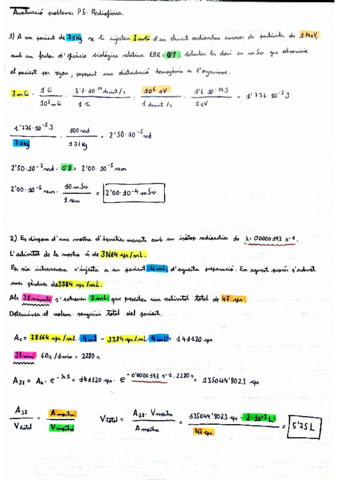 Avaluació problemes P5: Radiofísica.
1) A un pacient de 71kg se li injecten 3 mCi d'un element radioactiu emissor de partícules de 1 MeV,
amb un factor d'eficàcia biològica relativa EBR = 0'8. Calculeu la dosi en mSv que absorveix
el pacient per segon, suposant una distribució homogènia a l'organisme.
3 mCi · 1 Ci / 10³ mCi · 3'7·10¹⁰ desint/s / 1 Ci · 10⁶ eV / 1 desint/s · 1'6·10⁻¹⁹ J / 1 eV = 1'776·10⁻⁵ J
1'776·10⁻⁵ J / 71kg · 100 rad / 1 J/kg = 2'50·10⁻⁵ rad
2'50·10⁻⁵ rad · 0'8 = 2'00·10⁻⁵ rem
2'00·10⁻⁵ rem · 10 mSv / 1 rem = 2'00·10⁻⁴ mSv
2) Es disposa d'una mostra d'hematies marcats amb un isòtop radioactiu de λ = 0'0000193 s⁻¹.
L'activitat de la mostra és de 38664 cps/mL.
Per via intravenosa s'injecta a un pacient 4 mL d'aquesta preparació. En aquest procés s'adverteix
una pèrdua de 3384 cps/mL.
Als 38 minuts s'extreuen 2 mL que presenten una activitat total de 47 cps.
Determineu el volum sanguini total del pacient.
A₀ = 38664 cps/mL · 4 mL - 3384 cps/mL · 4 mL = 141120 cps
38 min · 60 s / 1 min = 2280 s
A₃₈ = A₀ · e^(-λt) = 141120 cps · e^(-0'0000193 s⁻¹ · 2280 s) = 135044'9023 cps
A₃₈ / V total = A mostra / V mostra V total = A₃₈ · V mostra / A mostra = 135044'9023 cps · 2·10⁻³ L / 47 cps = 5'75 L